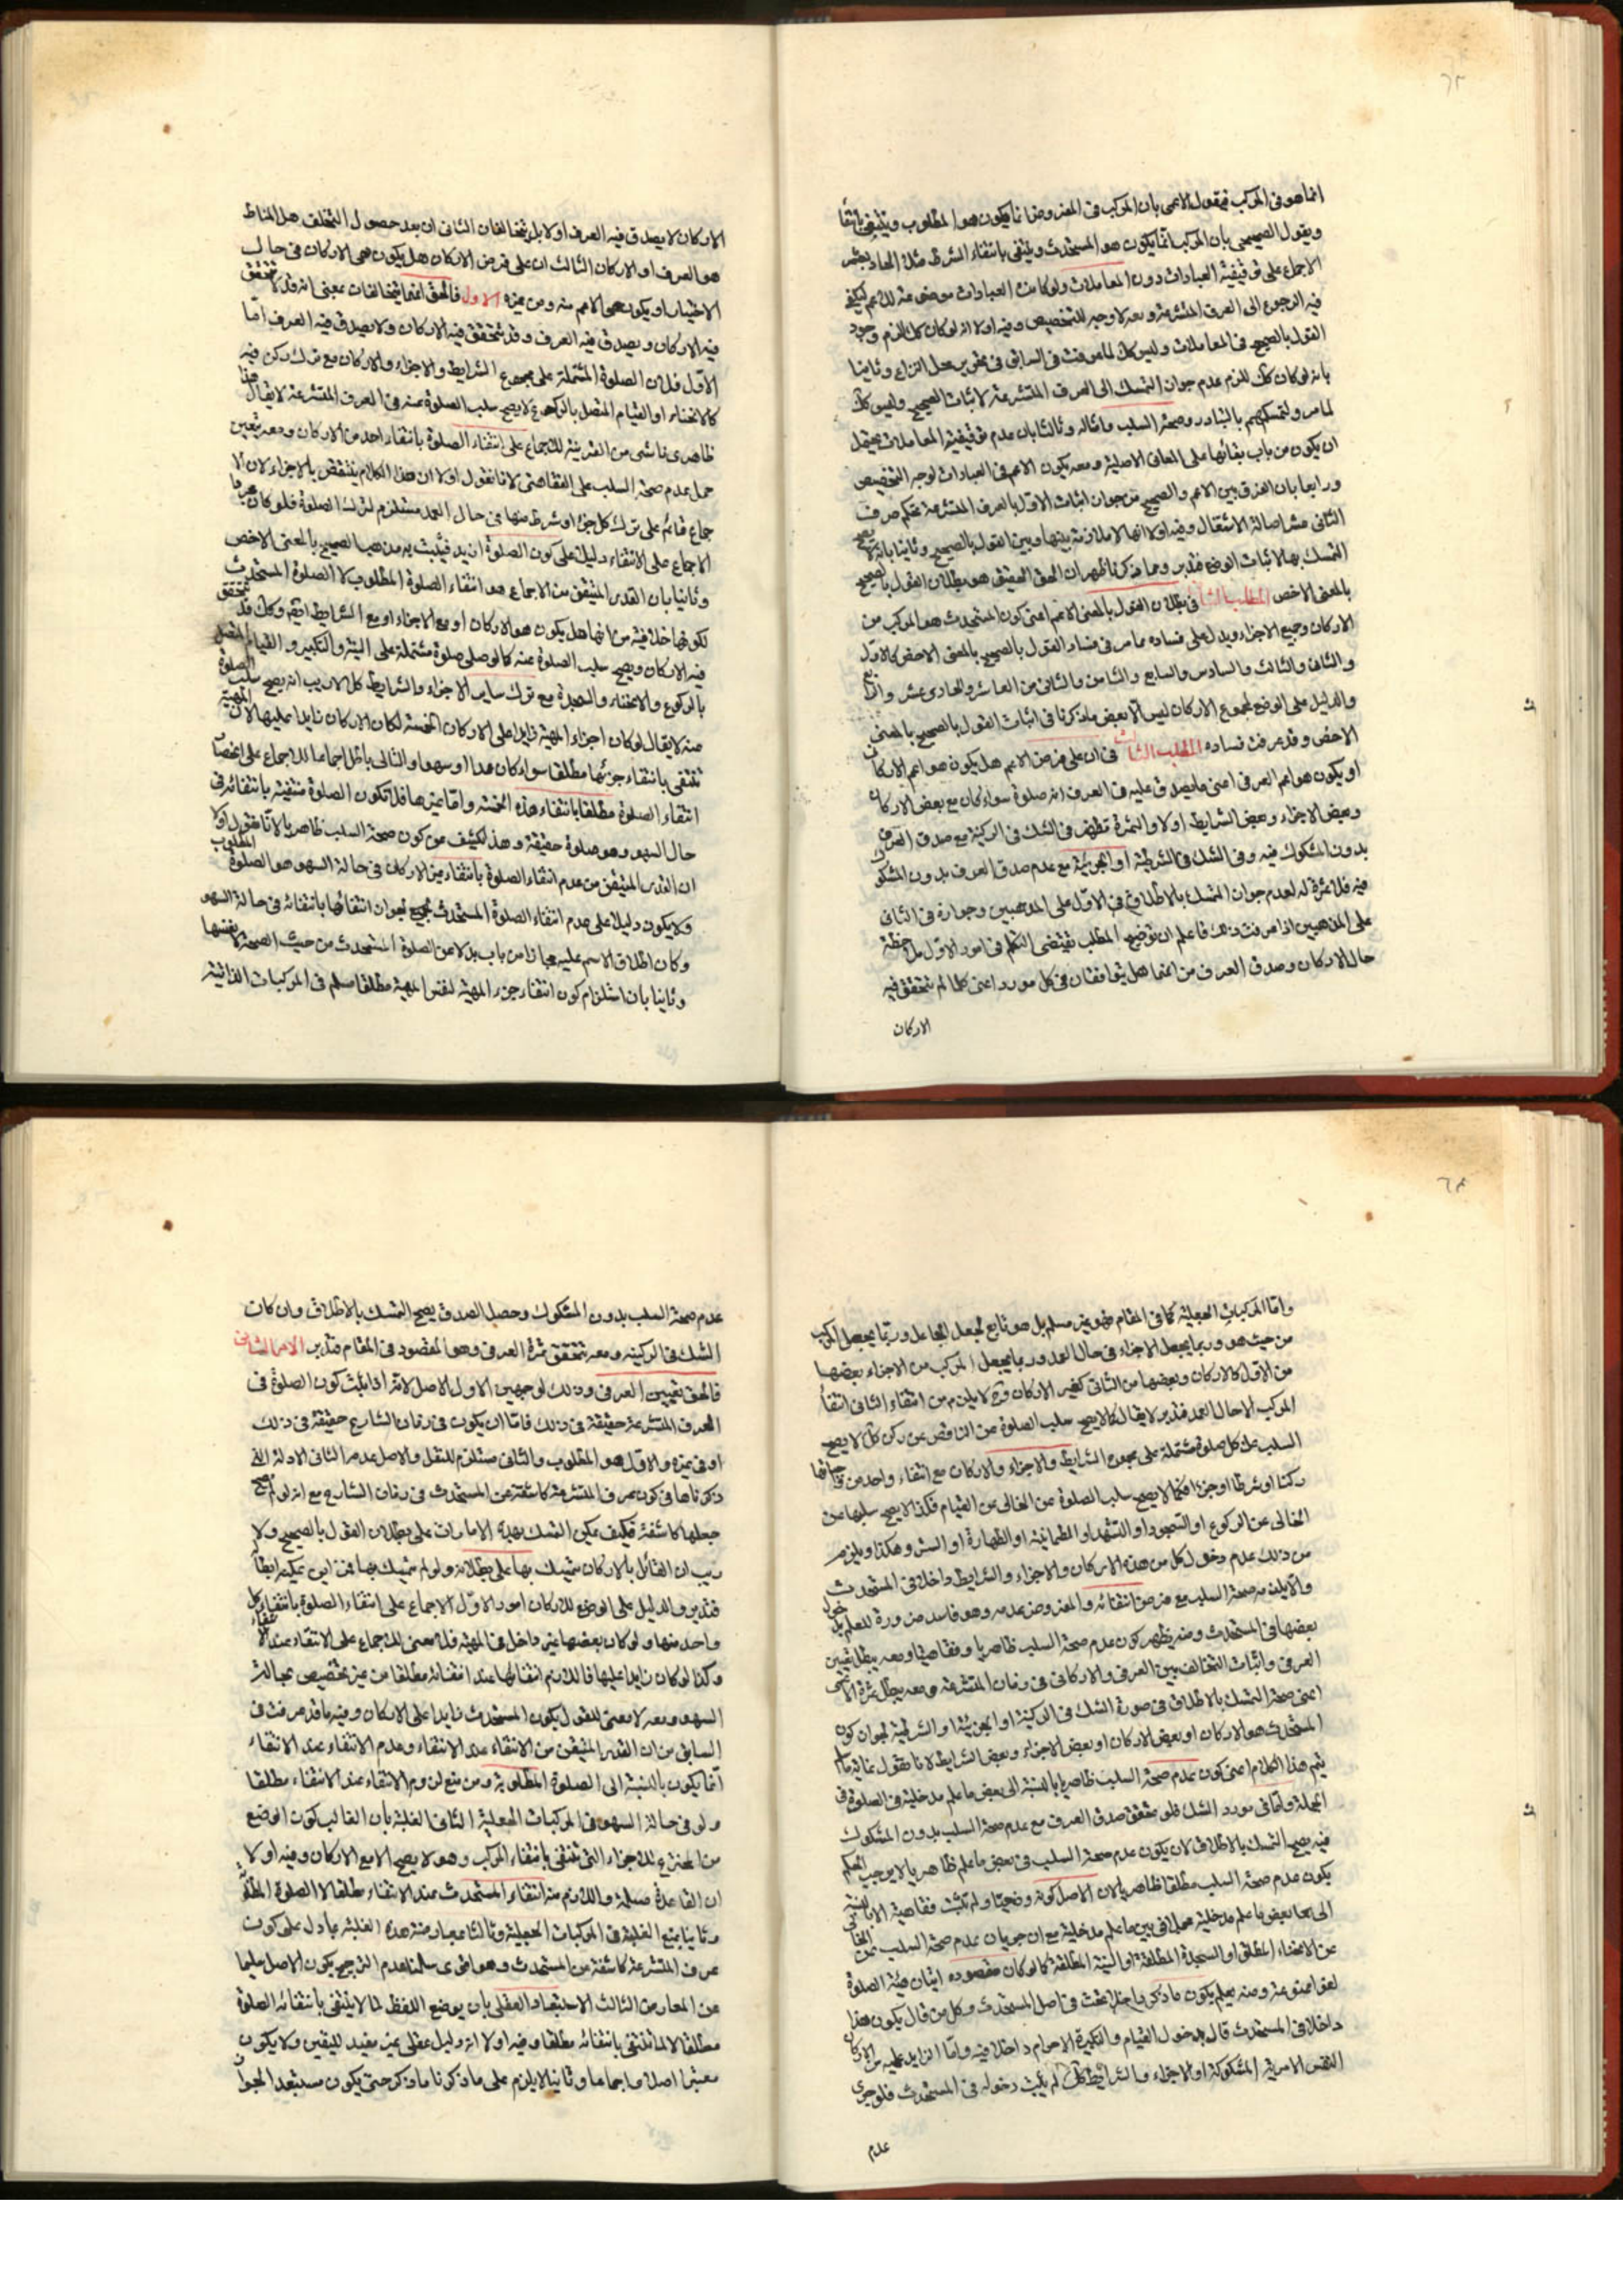 انما هو فى المركب فيقول الاعمى بان المركب فى المفروضا نما يكون هو المطلوب وينتفى بانتفا
ويقول الصحيحى بان المركب انما يكون هو المستحدث وينتفى بانتفاء الشرط مثله الحاديعشر
الاجماع على توقيفية العبادات دون المعاملات ولو كانت العبادات موضوعة للاعم ليكفى
فيه الرجوع الى العرف المتشرعة ومعه لا وجه للتخصيص وفيه اولا انه لو كان كك للزم وجود
القول بالصحيح فى المعاملات وليس كك لما عرفت فى السابق فى تحرير محل النزاع وثانيا
بانه لو كان كك للزم عدم جواز التمسك الى العرف المتشرعة لاثبات الصحيح وليس كك
لما مر ولتمسكهم بالتبادر وصحة السلب وامثاله وثالثا بان عدم توقيفية المعاملات يحتمل
ان يكون من باب بقائها على المعانى الاصلية ومعه يكون الاعم فى العبادات لوجه التخصيص
ورابعا بان الفرق بين الاعم والصحيح من جواز اثبات الاول بالعرف المتشرعة تحكم صرف
الثانى عشر اصالة الاشتغال وفيه اولا انها لا ملازمة بينها وبين القول بالصحيح وثانيا بانه لا يصح
التمسك بها لاثبات الوضع فتدبر ومما ذكرنا ظهر ان الحق الحقيق هو بطلان القول بالصحيح
بالمعنى الاخص المطلب الثا فى بطلان القول بالمعنى الاعم اعنى كون المستحدث هو المركب من
الاركان وجميع الاجزاء ويدل على فساده ما مر فى فساد القول بالصحيح بالمعنى الاخص كالاول
والثانى والثالث والسادس والسابع والثامن والثانى من العاشر والحادى عشر والرابع
والدليل على الوضع لمجموع الاركان ليس الا بعض ما ذكرنا فى اثبات القول بالصحيح بالمعنى
الاخص وقد عرفت فساده المطلب الثالث فى ان على فرض الاعم هل يكون هو اعم الاركانى
او يكون هو اعم العرفى اعنى ما يصدق عليه فى العرف انه صلوة سواء كان مع بعض الاركان
وبعض الاجزاء وبعض الشرايط اولا والثمرة تظهر فى الشك فى الركنية مع صدق العرفى
بدون المشكوك فيه وفى الشك فى الشرطية او الجزئية مع عدم صدق العرف بدون المشكوك
فيه فلا ثمرة له لعدم جواز التمسك بالاطلاق فى الاول على المذهبين وجوازه فى الثانى
على المذهبين اذا عرفت ذلك فاعلم ان توضيح المطلب تقتضى التكلم فى امور الاول ملاحظة
حال الاركان وصدق العرف من انهما هل يتوافقان فى كل مورد اعنى كلما لم يتحقق فيه
الاركان
الاركان لا يصدق فيه العرف اولا بل يتخالفان الثانى ان بعد حصول التخلف هل المناط
هو العرف او الاركان الثالث ان على فرض الاركان هل يكون هى الاركان فى حال
الاختيار او يكون هو الاعم منه ومن غيره الاول فالحق انهما يتخالفان بمعنى انه قد لا يتحقق
فيه الاركان ويصدق فيه العرف وقد يتحقق فيه الاركان ولا يصدق فيه العرف اما
الاول فلان الصلوة المشتملة على مجموع الشرايط والاجزاء والاركان مع ترك ركن فيه
كالانحناء او القيام المتصل بالركوع لا يصح سلب الصلوة عنه فى العرف المتشرعة لا يقال هذا
ظاهرى ناشى من القرينة للاجماع على انتفاء الصلوة بانتفاء احد من الاركان ومعه يتعين
حمل عدم صحة السلب على الفقاهتى لانا نقول اولا ان هذا الكلام ينتقض بالاجزاء لان الا
جماع قائم على ترك كل جزء او شرط منها فى حال العمد مستلزم لترك الصلوة فلو كان عرفا
الاجماع على الانتفاء دليل على كون الصلوة ازيد فيثبت به مذهب الصحيح بالمعنى الاخص
وثانيا بان القدر المتيقن من الاجماع هو انتفاء الصلوة المطلوب لا الصلوة المستحدث
لكونها خلافية من انها هل يكون هو الاركان او مع الاجزاء او مع الشرايط ايضا وكك قد يتحقق
فيه الاركان ويصح سلب الصلوة عنه كما لو صلى صلوة مشتملة على النية والتكبير والقيام المتصل
بالركوع والانحناء والسجدة مع ترك ساير الاجزاء والشرايط كل لا ريب انه يصح سلب الصلوة
عنه لا يقال لو كان اجزاء المهية زايدا على الاركان الخمسة لكان الاركان زايدا عليها لان المهية
تنتفى بانتفاء جزئها مطلقا سواء كان عمدا او سهوا والتالى باطل اجماعا للاجماع على انحصار
انتفاء الصلوة مطلقا بانتفاء هذه الخمسة واما غيرها فلا تكون الصلوة منتفية بانتفائه فى
حال السهو وهو صلوة حقيقة وهذا لكشف عن كون صحة السلب ظاهريا لانا نقول اولا
ان القدر المتيقن من عدم انتفاء الصلوة بانتفاء غير الاركان فى حالة السهو هو الصلوة المطلوب
ولا يكون دليلا على عدم انتفاء الصلوة المستحدث لجواز انتفائها بانتفائه فى حالة السهو
وكان اطلاق الاسم عليه مجازا من باب بدلا عن الصلوة المستحدث من حيث الصحة لا نفسها
وثانيا بان استلزام كون انتفاء جزء المهية لنفس المهية مطلقا مسلم فى المركبات الذاتية
واما المركبات الجعلية كما فى المقام فهو غير مسلم بل هو تابع لجعل الجاعل وربما يجعل المركب
من حيث هو وربما يجعل الاجزاء فى حال العمد وربما يجعل المركب من الاجزاء بعضها
من الاول كالاركان وبعضها من الثانى كغير الاركان وح لا يلزم من انتفاء الثانى انتفاء
المركب الا حال العمد فتدبر لا يقال كما لا يصح سلب الصلوة عن الناقص عن ركن كك لا يصح
السلب عن كل صلوة مشتملة على مجموع الشرايط والاجزاء والاركان مع انتفاء واحد من
ركنا او شرطا او جزءا فكما لا يصح سلب الصلوة عن الخالى عن القيام فكذا لا يصح سلبها عن
الخالى عن الركوع او السجود او التشهد او الطمانينة او الطهارة او الستر وهكذا ويلزم
من ذلك عدم دخول كل من هذه الاركان والاجزاء والشرايط داخلا فى المستحدث
والا يلزمه صحة السلب مع فرض انتفائه والمفروض عدمه وهو فاسد ضرورة للعلم بدخول
بعضها فى المستحدث ومنه يظهر كون عدم صحة السلب ظاهريا وفقاهتيا ومعه يبطل تعيين
العرفى واثبات التخالف بين العرفى والاركانى فى زمان المتشرعة ومعه يبطل ثمرة الاعمى
اعنى صحة التمسك بالاطلاق فى صورة الشك فى الركنية او الجزئية او الشرطية لجواز كون
المستحدث هو الاركان او بعض الاركان او بعض الاجزاء وبعض الشرايط لانا نقول غاية ما
يتم هذا الكلام اعنى كون عدم صحة السلب ظاهريا بالنسبة الى بعض ما علم مدخليته فى الصلوة فى
الجملة واما فى مورد الشك فلو تحقق صدق العرف مع عدم صحة السلب بدون المشكوك
فيه يصح التمسك بالاطلاق لان يكون عدم صحة السلب فى بعض ما علم ظاهريا لا يوجب الحكم
يكون عدم صحة السلب مطلقا ظاهريا لان الاصل كونه وضعيا ولم تثبت فقاهتية الا بالنسبة
الى بعض ما علم مدخليته مجملا فى بين ما علم مدخليته مع ان جريان عدم صحة السلب عن الخالى
عن الانحناء المطلق او السجدة المطلقة او النية المطلقة كما لو كان مقصوده اتيان هيئة الصلوة
لغوا ممنوعة ومنه يعلم يكون ما ذكر داخلا تحت فى اصل المستحدث وكل من قال يكون هذا
داخلا فى المستحدث قال بدخول القيام والتكبيرة الاحرام داخلا فيه واما الزايد عليه من الاركان
النفس الامرية المشكوكة او الاجزاء والشرايط كك لم يثبت دخوله فى المستحدث فلو جرى
عدم
عدم صحة السلب بدون المشكوك وحصل الصدق يصح التمسك بالاطلاق وان كان
الشك فى الركنية ومعه تتحقق ثمرة العرفى وهو المقصود فى المقام فتدبر الامر الثانى
فالحق تعيين العرفى وذلك لوجهين الاول الاصل لانه اذا ثبت كون الصلوة فى
العرف المتشرعة حقيقة فى ذلك فاما ان يكون فى زمان الشارع حقيقة فى ذلك
او فى غيره والاول هو المطلوب والثانى مستلزم للنقل والاصل عدمه الثانى الادلة التى
ذكرناها فى كون عرف المتشرعة كاشفة عن المستحدث فى زمان الشارع مع انه لو لم يصح
جعلها كاشفة فكيف يمكن التمسك بهذه الامارات على بطلان القول بالصحيح ولا
ريب ان القائل بالاركان يتمسك بها على بطلانه ولو لم يتمسك بها فمن اين يمكنه ابطا
فتدبر والدليل على الوضع للاركان امور الاول الاجماع على انتفاء الصلوة بانتفاء كل
واحد منها ولو كان بعضها غير داخل فى المهية فلا معنى للاجماع على الانتفاء عند الانتفاء
وكذا لو كان زايدا عليها فاللازم انتفائها عند انتفائه مطلقا من غير تخصيص بحالة
السهو ومعه لا معنى للقول بكون المستحدث زايدا على الاركان وفيه ما قد عرفت فى
السابق من ان القدر المتيقن من الانتفاء عند الانتفاء وعدم الانتفاء عند الانتفاء
انما يكون بالنسبة الى الصلوة المطلوبة ومن منع لزوم الانتفاء عند الانتفاء مطلقا
ولو فى حالة السهو فى المركبات الجعلية الثانى الغلبة بان الغالب كون الوضع
من المخترع للاجزاء التى تنتفى بانتفاء المركب وهو لا يصح الا مع الاركان وفيه اولا
ان القاعدة مسلمة واللازم منه انتفاء المستحدث عند الانتفاء مطلقا لا الصلوة المطلو
وثانيا بمنع الغلبة فى المركبات الجعلية وثالثا معارضة هذه الغلبة بما دل على كون
عرف المتشرعة كاشفة عن المستحدث وهو اقوى سلمنا عدم الترجيح يكون الاصل سليما
عن المعارض الثالث الاستبعاد العقلى بان يوضع اللفظ لما لا ينتفى بانتفائه الصلوة
مطلقا لا لما تنتفى بانتفائه مطلقا وفيه اولا انه دليل عقلى غير مفيد لليقين ولا يكون
معتبرا اصلا واجماعا وثانيا لا يلزم على ما ذكرنا ما ذكر حتى يكون مستبعدا لجواز